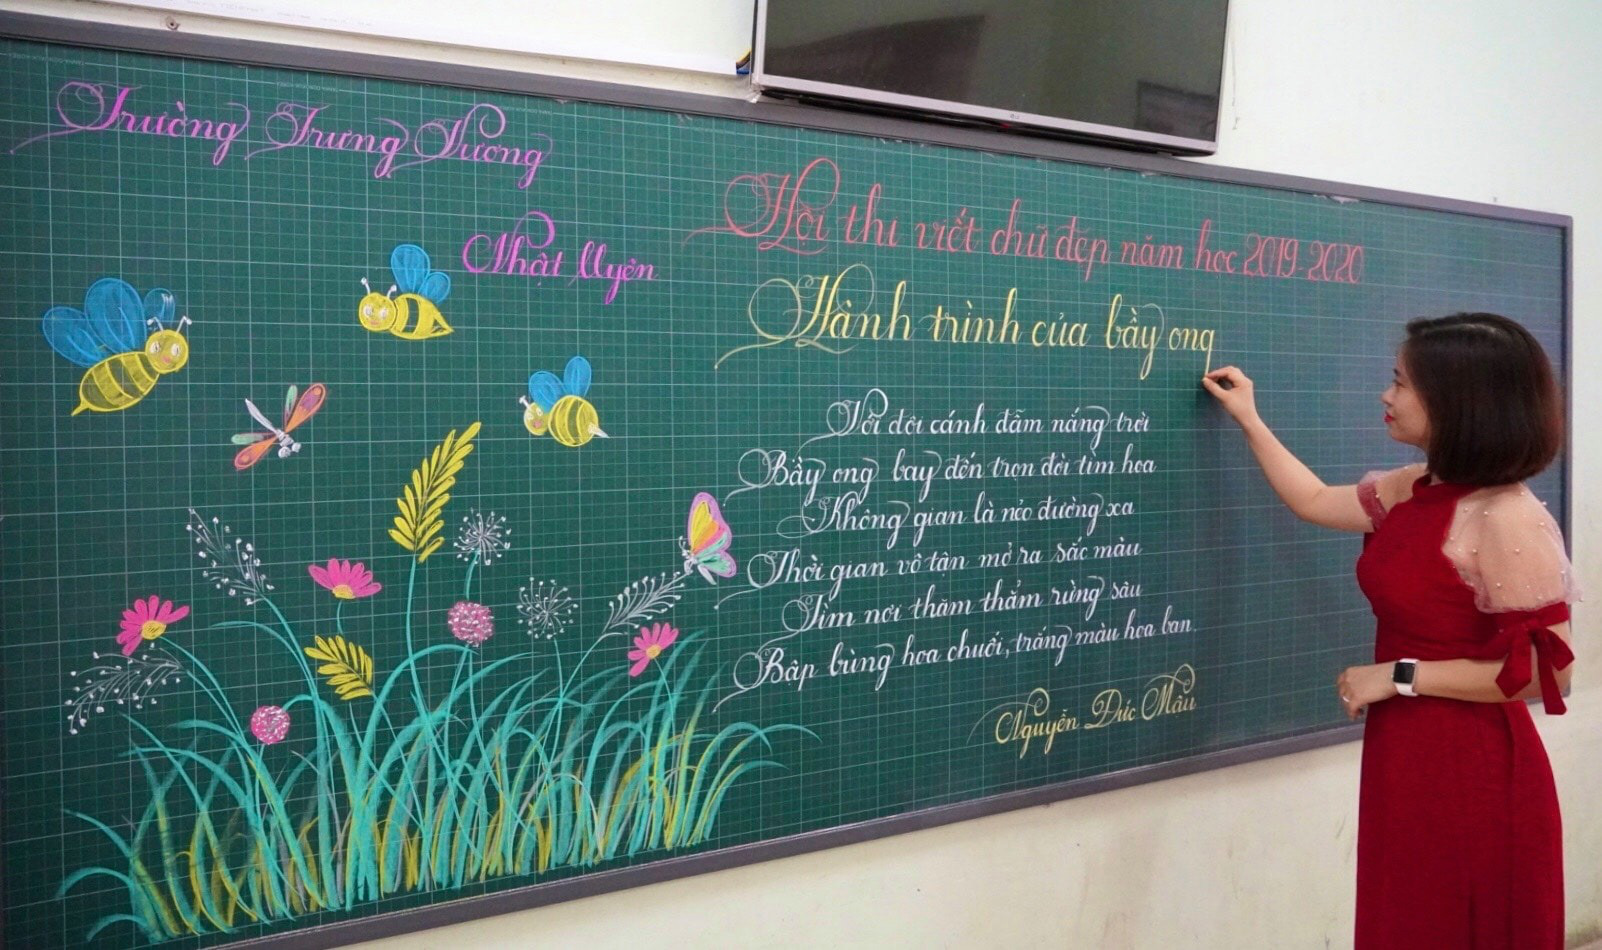 Trường Trưng Vương
Nhật Uyên
Hội thi viết chữ đẹp năm học 2019-2020
Hành trình của bầy ong
Với đôi cánh đẫm nắng trời
Bầy ong bay đến trọn đời tìm hoa
Không gian là nẻo đường xa
Thời gian vô tận mở ra sắc màu
Tìm nơi thăm thẳm rừng sâu
Bập bùng hoa chuối, trắng màu hoa ban.
Nguyễn Đức Mậu